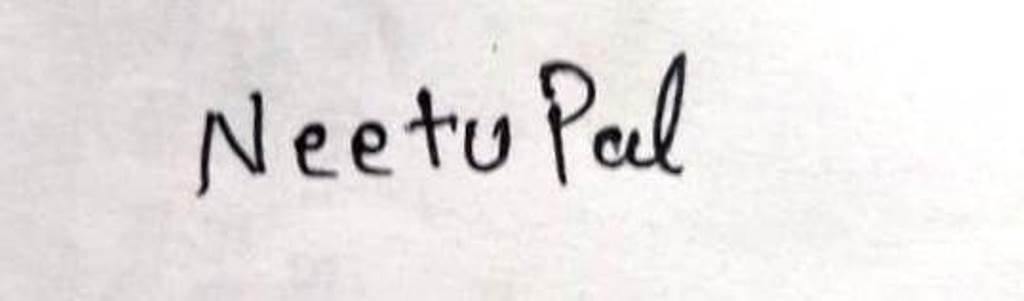 Neetu Pal